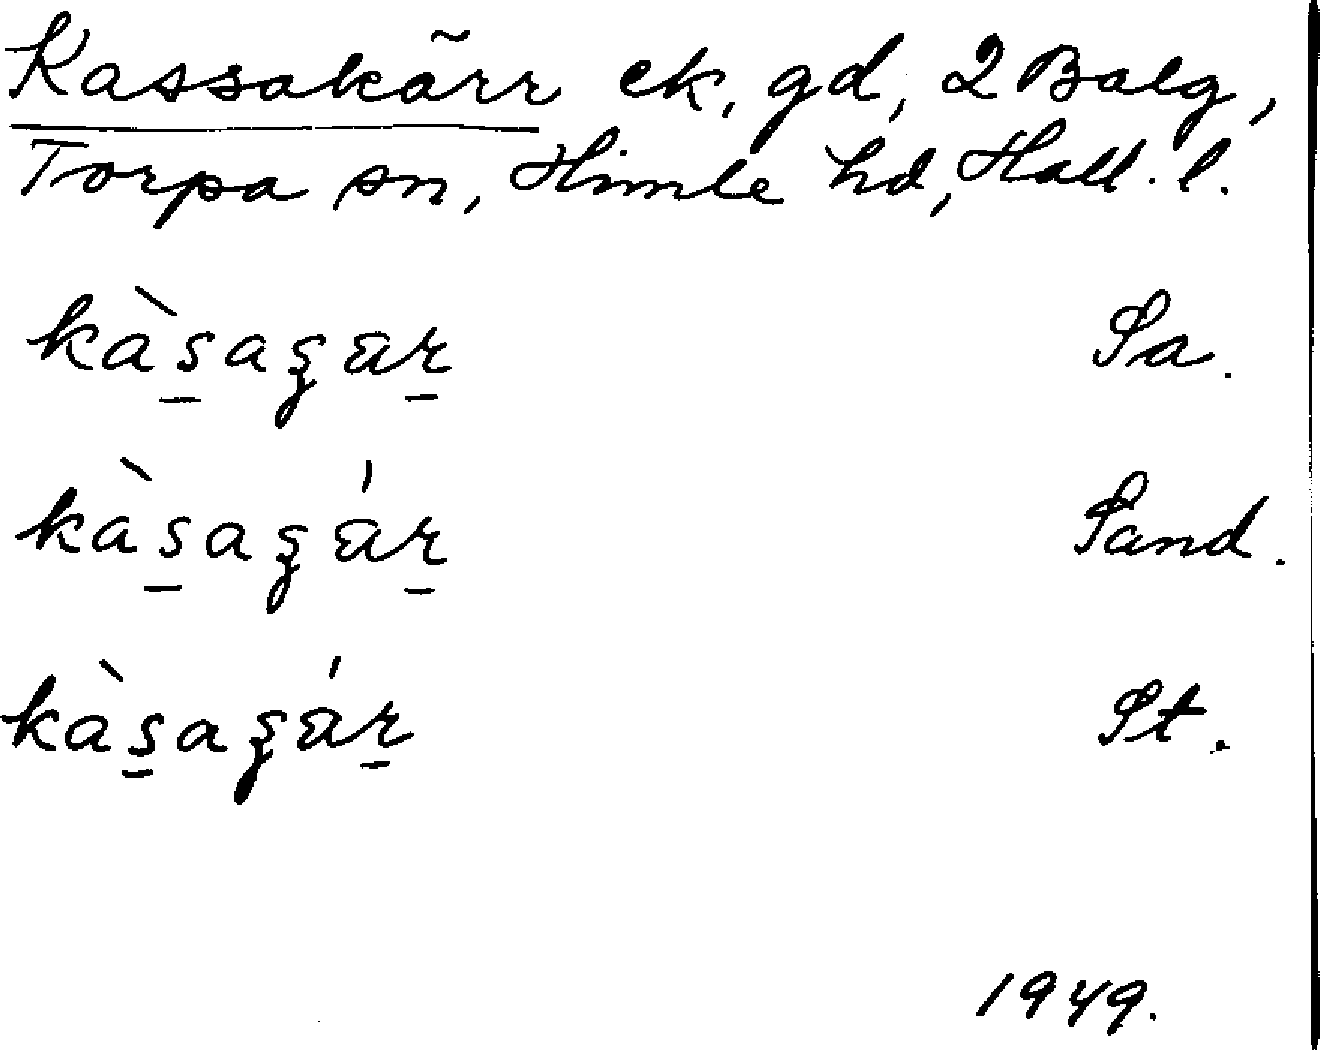 Kassakärr ek, gd, 2 Balg,
Torpa sn, Himle hd, Hall. l.
kàs̠aʒar̠ Sa.
kàs̠aʒár̠ Sand.
kàs̠aʒár̠ St.
1949.